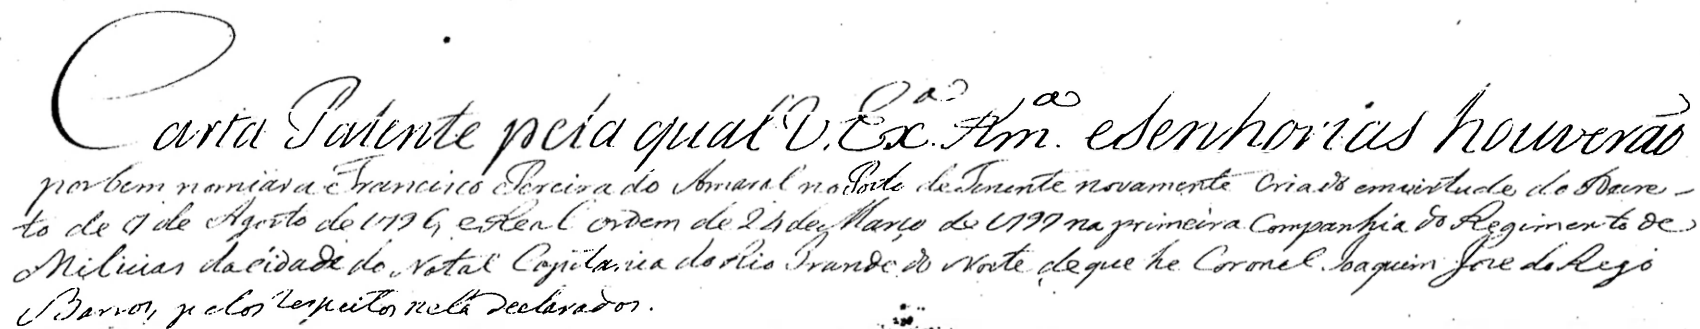 Carta Patente pela qual V. Exª. Rmª. e senhorias houverão
por bem nomiara Francisco Pereira do Amaral no Posto de Tenente novamente criado em virtude do Decre-
to de 7 de Agosto de 1796, e Real ordem de 24 de Março de 1797 na primeira Companhia do Regimento de
Milicias da cidade do Natal Capitania do Rio Grande do Norte, de que he Coronel Joaquim Jose do Rego
Barros, pelos respeitos nella declarados.